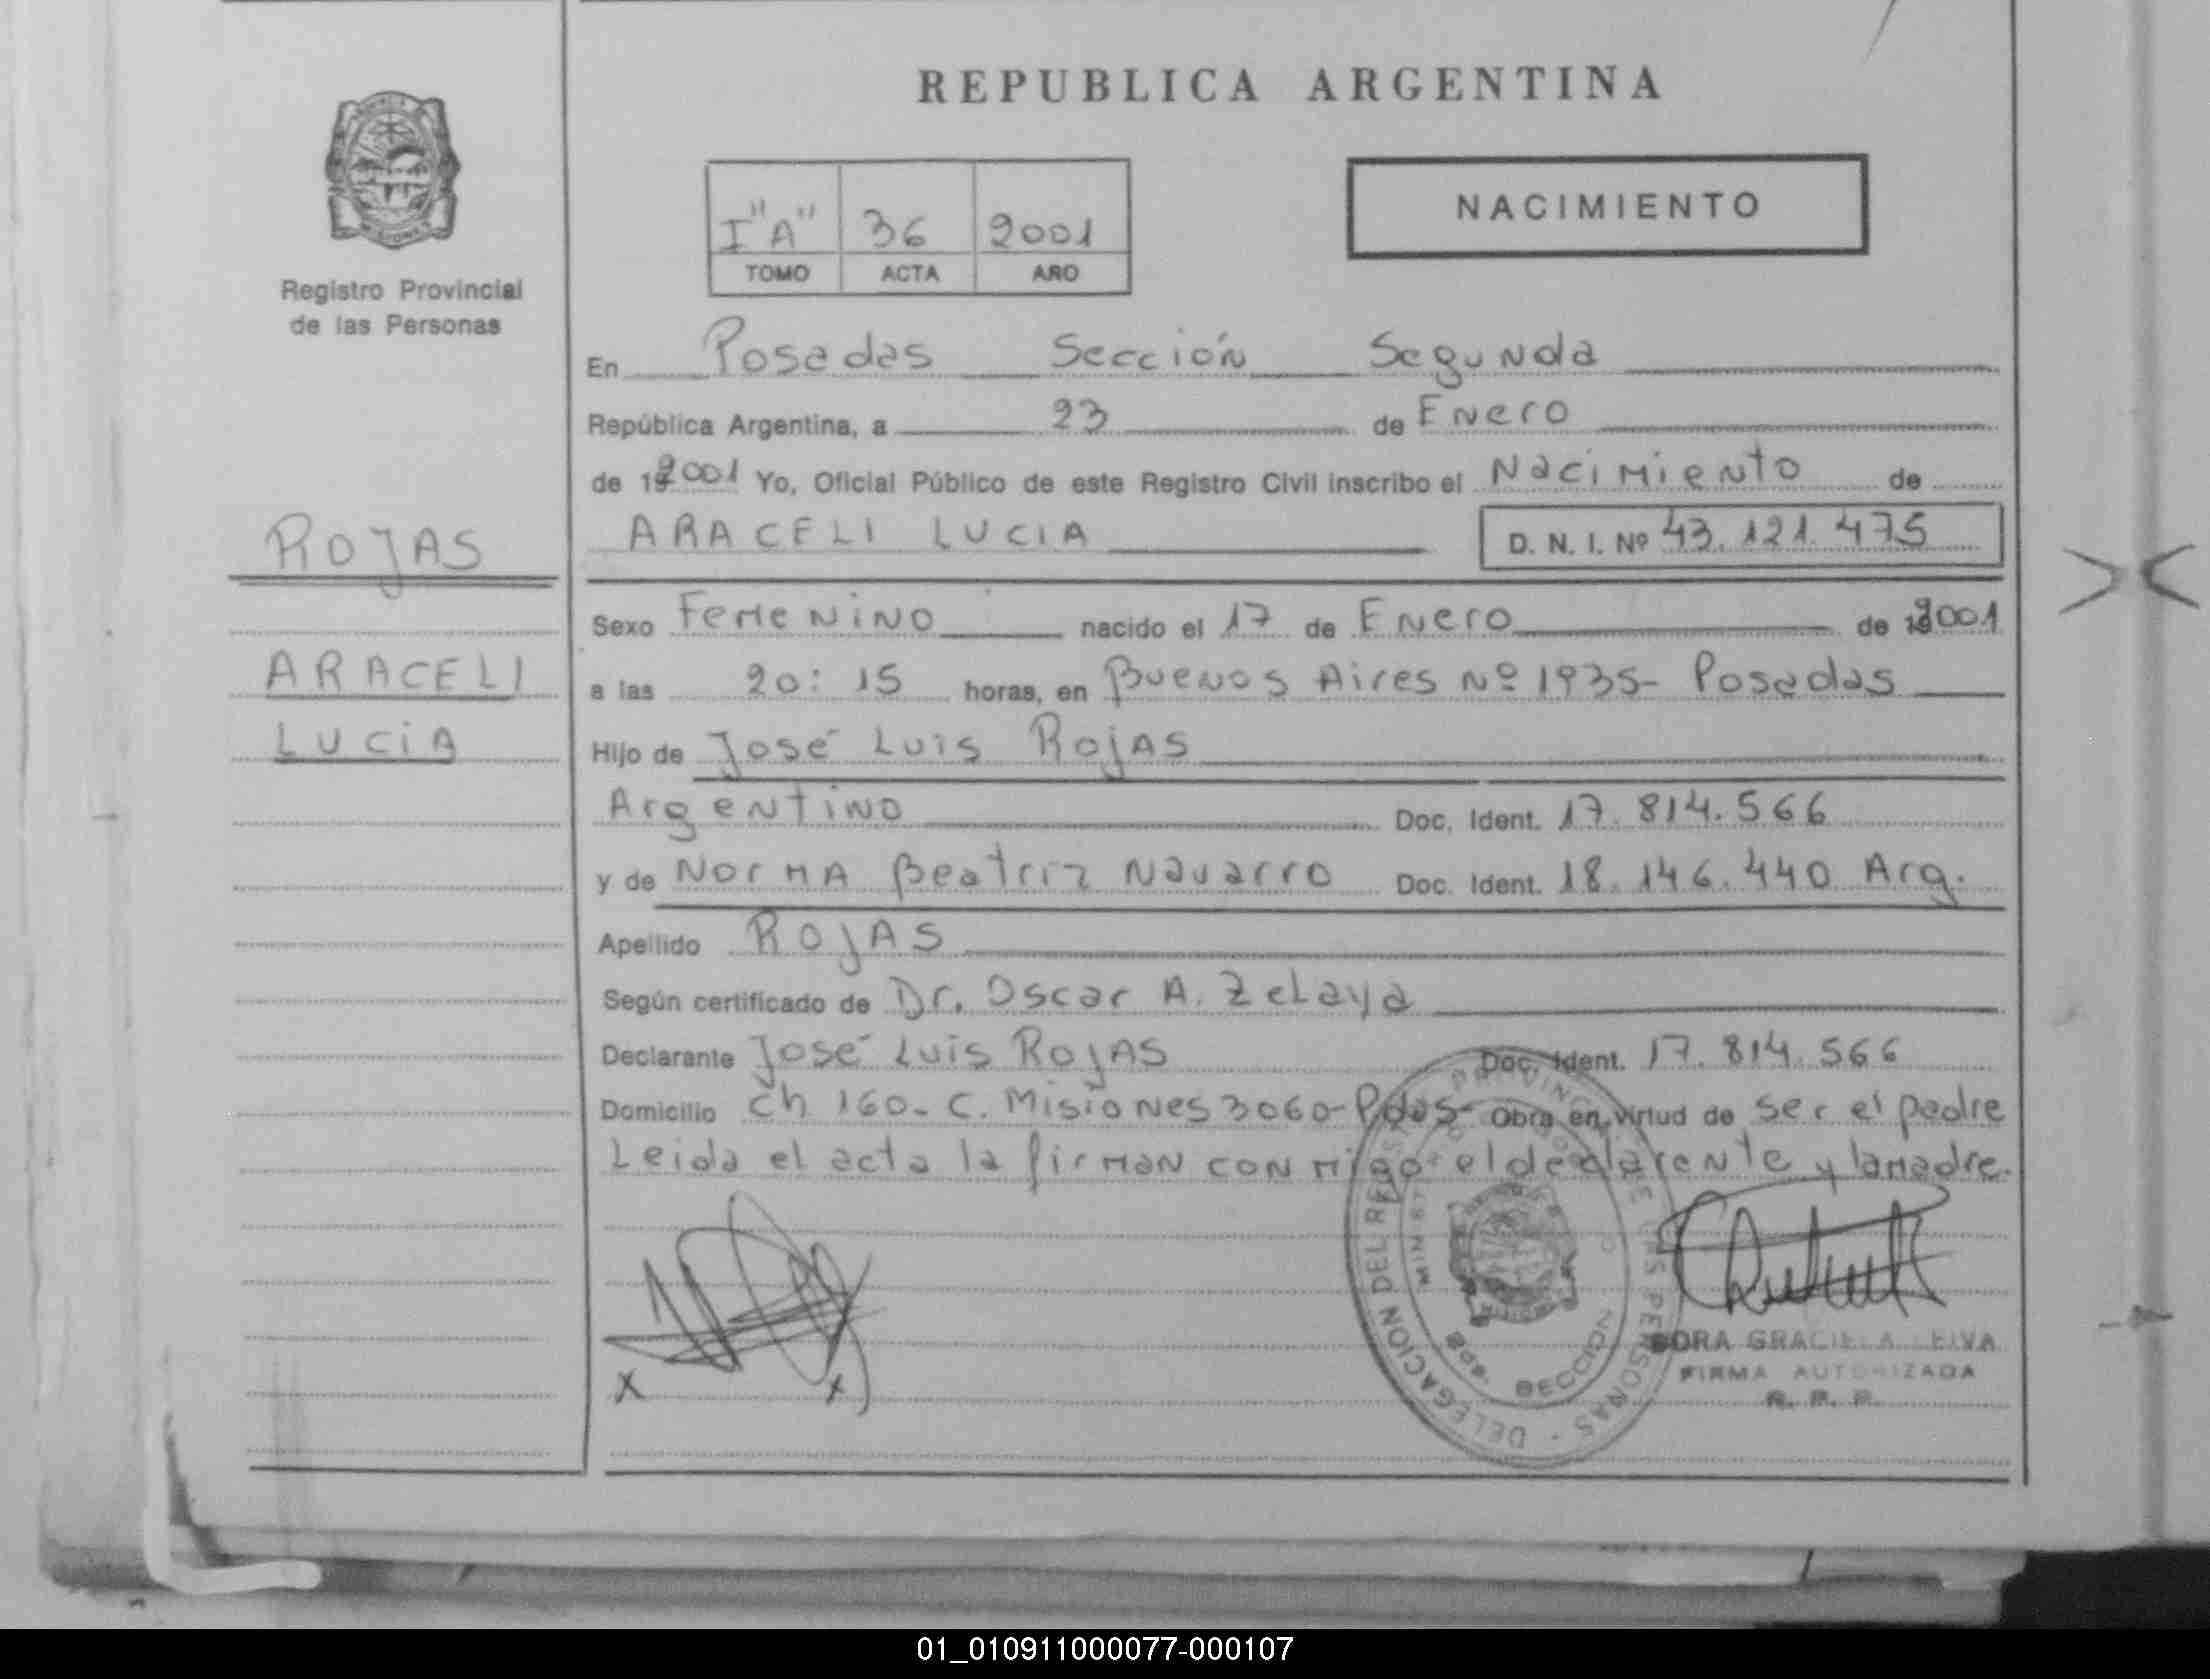 REPUBLICA ARGENTINA
MISIONES
Registro Provincial
de las Personas
I "A" 36 2001
TOMO ACTA AÑO
NACIMIENTO
En Posadas Sección Segunda
República Argentina, a 23 de Enero
de 192001 Yo, Oficial Público de este Registro Civil inscribo el Nacimiento de
ARACELI LUCIA D. N. I. Nº 43.121.475
ROJAS
ARACELI
LUCIA
Sexo Femenino nacido el 17 de Enero de 2001
a las 20:15 horas, en Buenos Aires Nº 1935- Posadas
Hijo de José Luis Rojas
Argentino Doc. Ident. 17.814.566
y de Norma Beatriz Navarro Doc. Ident. 18.146.440 Arg.
Apellido ROJAS
Según certificado de Dr. Oscar A. Zelaya
Declarante José Luis Rojas Doc. Ident. 17.814.566
Domicilio Ch 160- C. Misiones 3060- Pdas- Obra en virtud de ser el padre
Leida el acta la firman con migo el declarente y la madre.
DELEGACION DEL REGISTRO PROVINCIAL DE LAS PERSONAS
2da. SECCION
DORA GRACIELA LEIVA
FIRMA AUTORIZADA
R. P. P.
x x
01_010911000077-000107